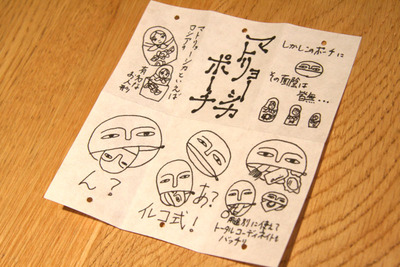 マトリョーシカ
ポーチ
マトリョーシカといえば
ロシアの
有名な
お人形
しかしこのポーチに
その面影は
皆無…
ん?
あ?
イルコ式!
用途別に使えて
トータルコーディネイトも
バッチリ